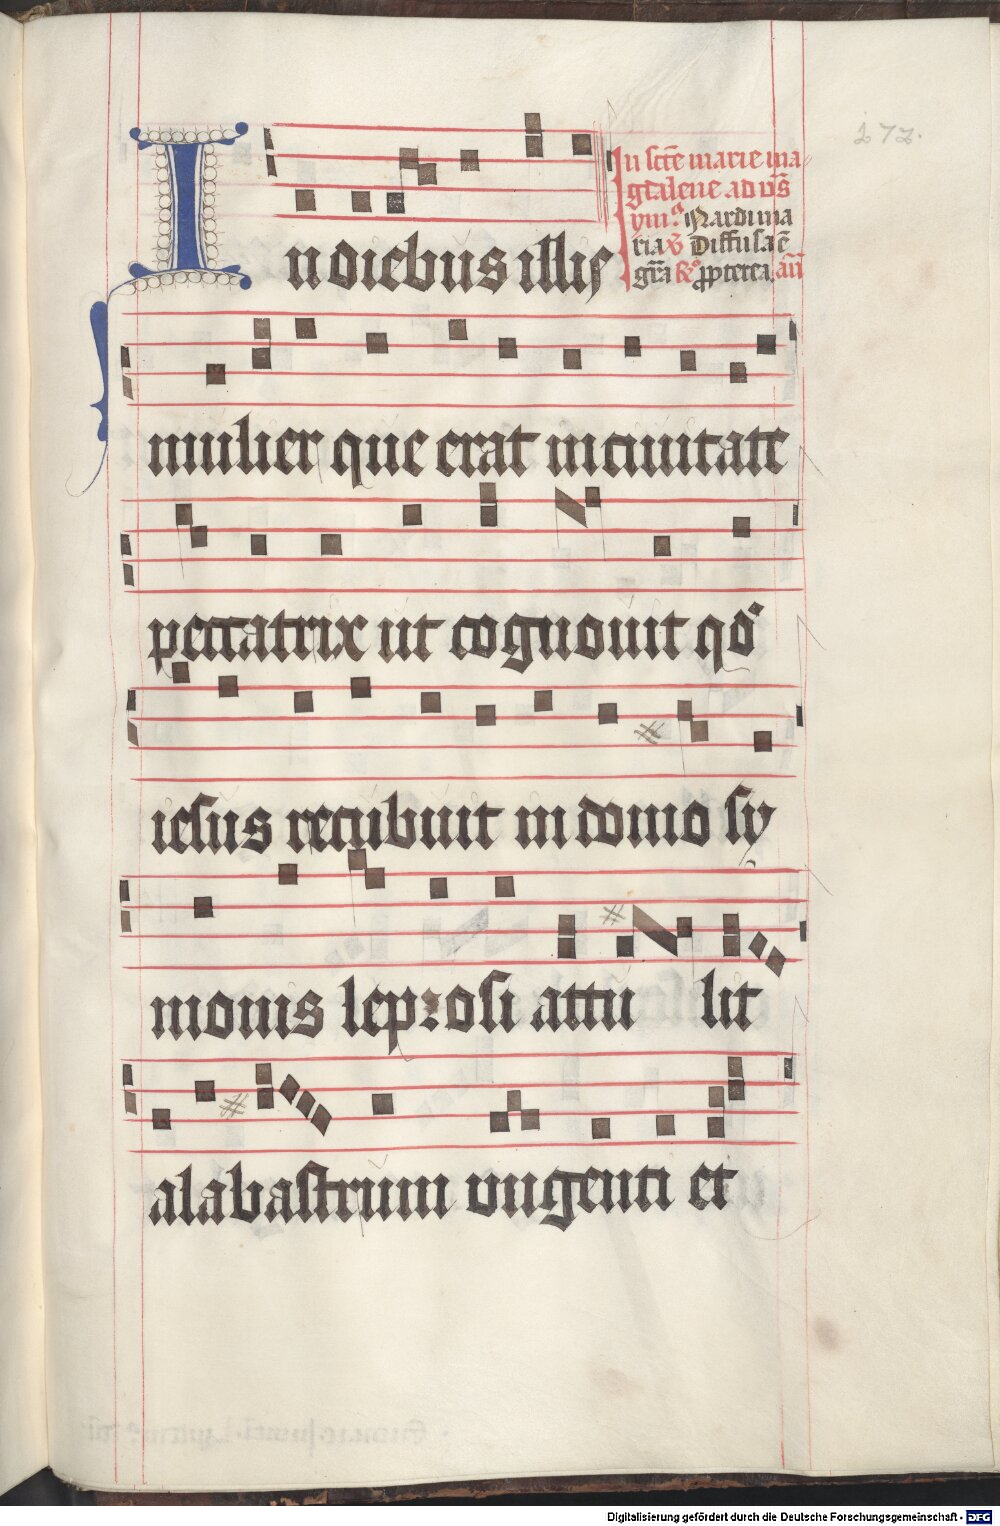 272.
In scte marie ma
gdalene ad vs
ymꝰ Nardi ma
ria v̄ Diffusa ē
gr̄a Rꝰ ꝓpterea an̄
In diebus illis
mulier que erat in ciuitate
peccatrix ut cognouit qo
iesus recubuit in domo sy
monis leprosi attu lit
alabastrum vngenti et
Digitalisierung gefördert durch die Deutsche Forschungsgemeinschaft - DFG